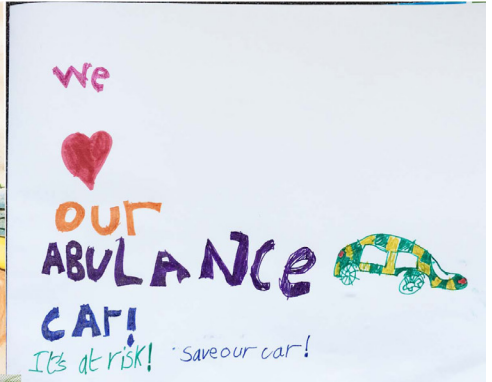 we
our
ABULANCe
CAr!
It's at risk! save our car!